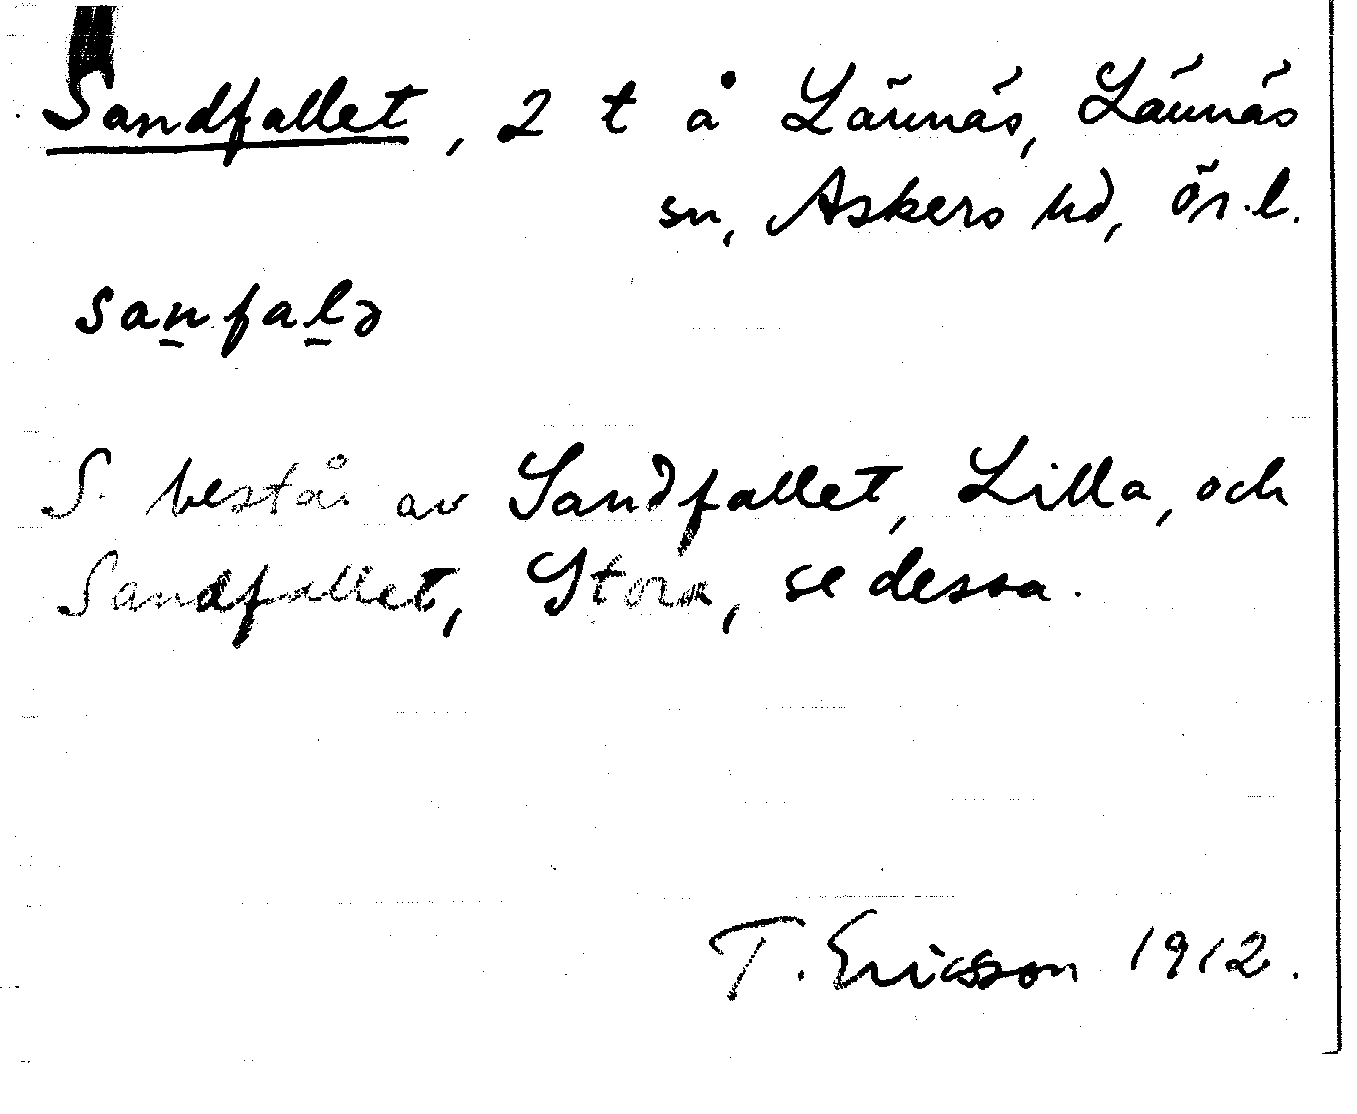 Sandfallet, 2 t å Lännäs, Lännäs
sn, Askers hd, Ör.l.
sanfalə
S. består av Sandfallet, Lilla, och
Sandfallet, Stora, se dessa.
T. Ericsson 1912.